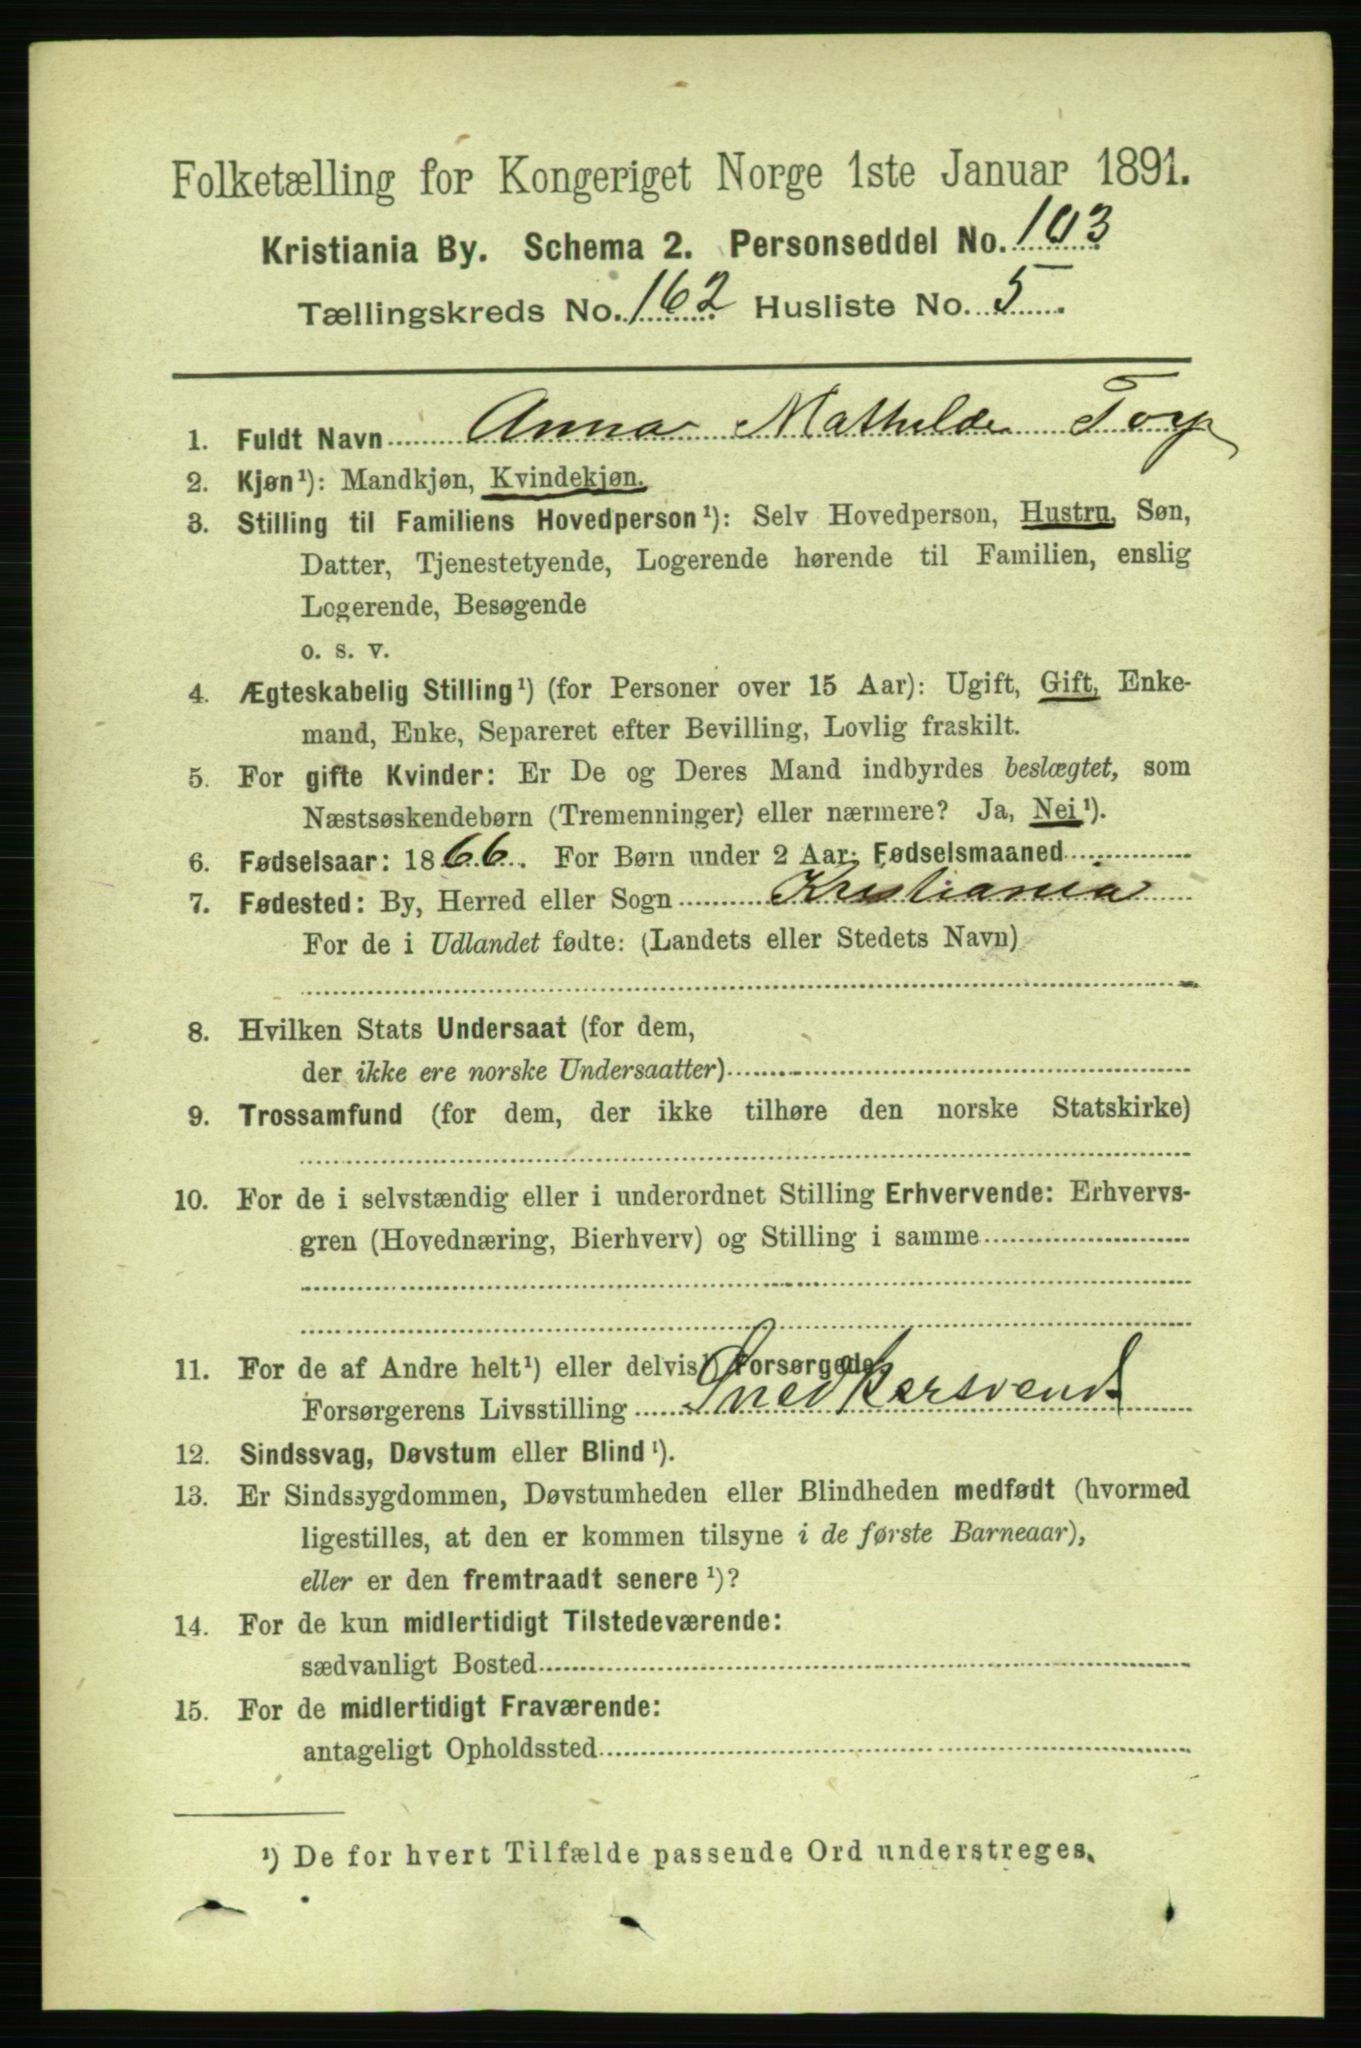 Folketælling for Kongeriget Norge 1ste Januar 1891.
Kristiania By. Schema 2. Personseddel No. 103
Tællingskreds No. 162 Husliste No. 5
1. Fuldt Navn Anna Mathilde Torp
2. Kjøn¹): Mandkjøn, Kvindekjøn.
3. Stilling til Familiens Hovedperson¹): Selv Hovedperson, Hustru, Søn,
Datter, Tjenestetyende, Logerende hørende til Familien, enslig
Logerende, Besøgende
o. s. v.
4. Ægteskabelig Stilling¹) (for Personer over 15 Aar): Ugift, Gift, Enke-
mand, Enke, Separeret efter Bevilling, Lovlig fraskilt.
5. For gifte Kvinder: Er De og Deres Mand indbyrdes beslægtet, som
Næstsøskendebørn (Tremenninger) eller nærmere? Ja, Nei¹).
6. Fødselsaar: 1866. For Børn under 2 Aar: Fødselsmaaned
7. Fødested: By, Herred eller Sogn Kristiania
For de i Udlandet fødte: (Landets eller Stedets Navn)
8. Hvilken Stats Undersaat (for dem,
der ikke ere norske Undersaatter)
9. Trossamfund (for dem, der ikke tilhøre den norske Statskirke)
10. For de i selvstændig eller i underordnet Stilling Erhvervende: Erhvervs-
gren (Hovednæring, Bierhverv) og Stilling i samme
11. For de af Andre helt¹) eller delvis¹) Forsørgede
Forsørgerens Livsstilling Snedkersvend
12. Sindssvag, Døvstum eller Blind¹).
13. Er Sindssygdommen, Døvstumheden eller Blindheden medfødt (hvormed
ligestilles, at den er kommen tilsyne i de første Barneaar),
eller er den fremtraadt senere¹)?
14. For de kun midlertidigt Tilstedeværende:
sædvanligt Bosted
15. For de midlertidigt Fraværende:
antageligt Opholdssted
¹) De for hvert Tilfælde passende Ord understreges.